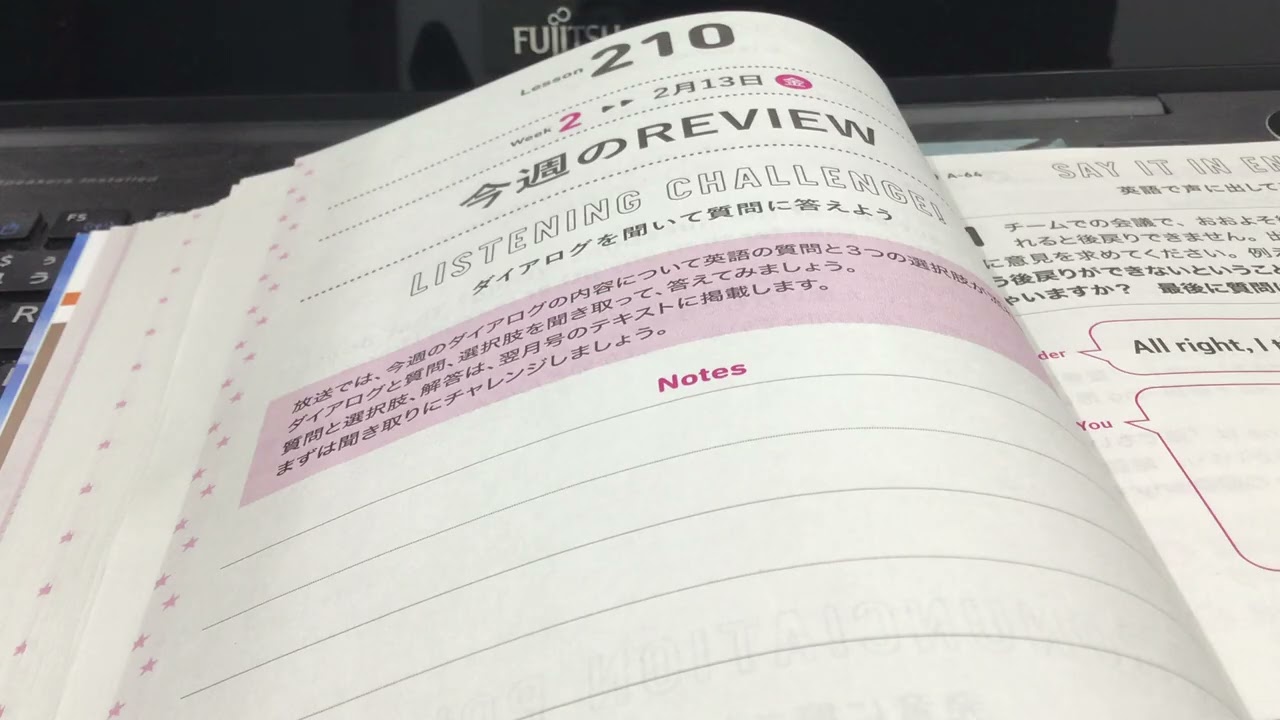 FUJITSU
Lesson 210
Week 2 ▶▶ 2月13日 金
今週のREVIEW
LISTENING CHALLENGE!
ダイアログを聞いて質問に答えよう
放送では、今週のダイアログの内容について英語の質問と3つの選択肢が
ダイアログと質問、選択肢を聞き取って、答えてみましょう。
質問と選択肢、解答は、翌月号のテキストに掲載します。
まずは聞き取りにチャレンジしましょう。
Notes
A-64
SAY IT IN EN
英語で声に出して
1
チームでの会議で、おおよそ
れると後戻りできません。出
に意見を求めてください。例え
う後戻りができないということ
ゃいますか? 最後に質問
der
All right, I
You
speakers installed
F5
R